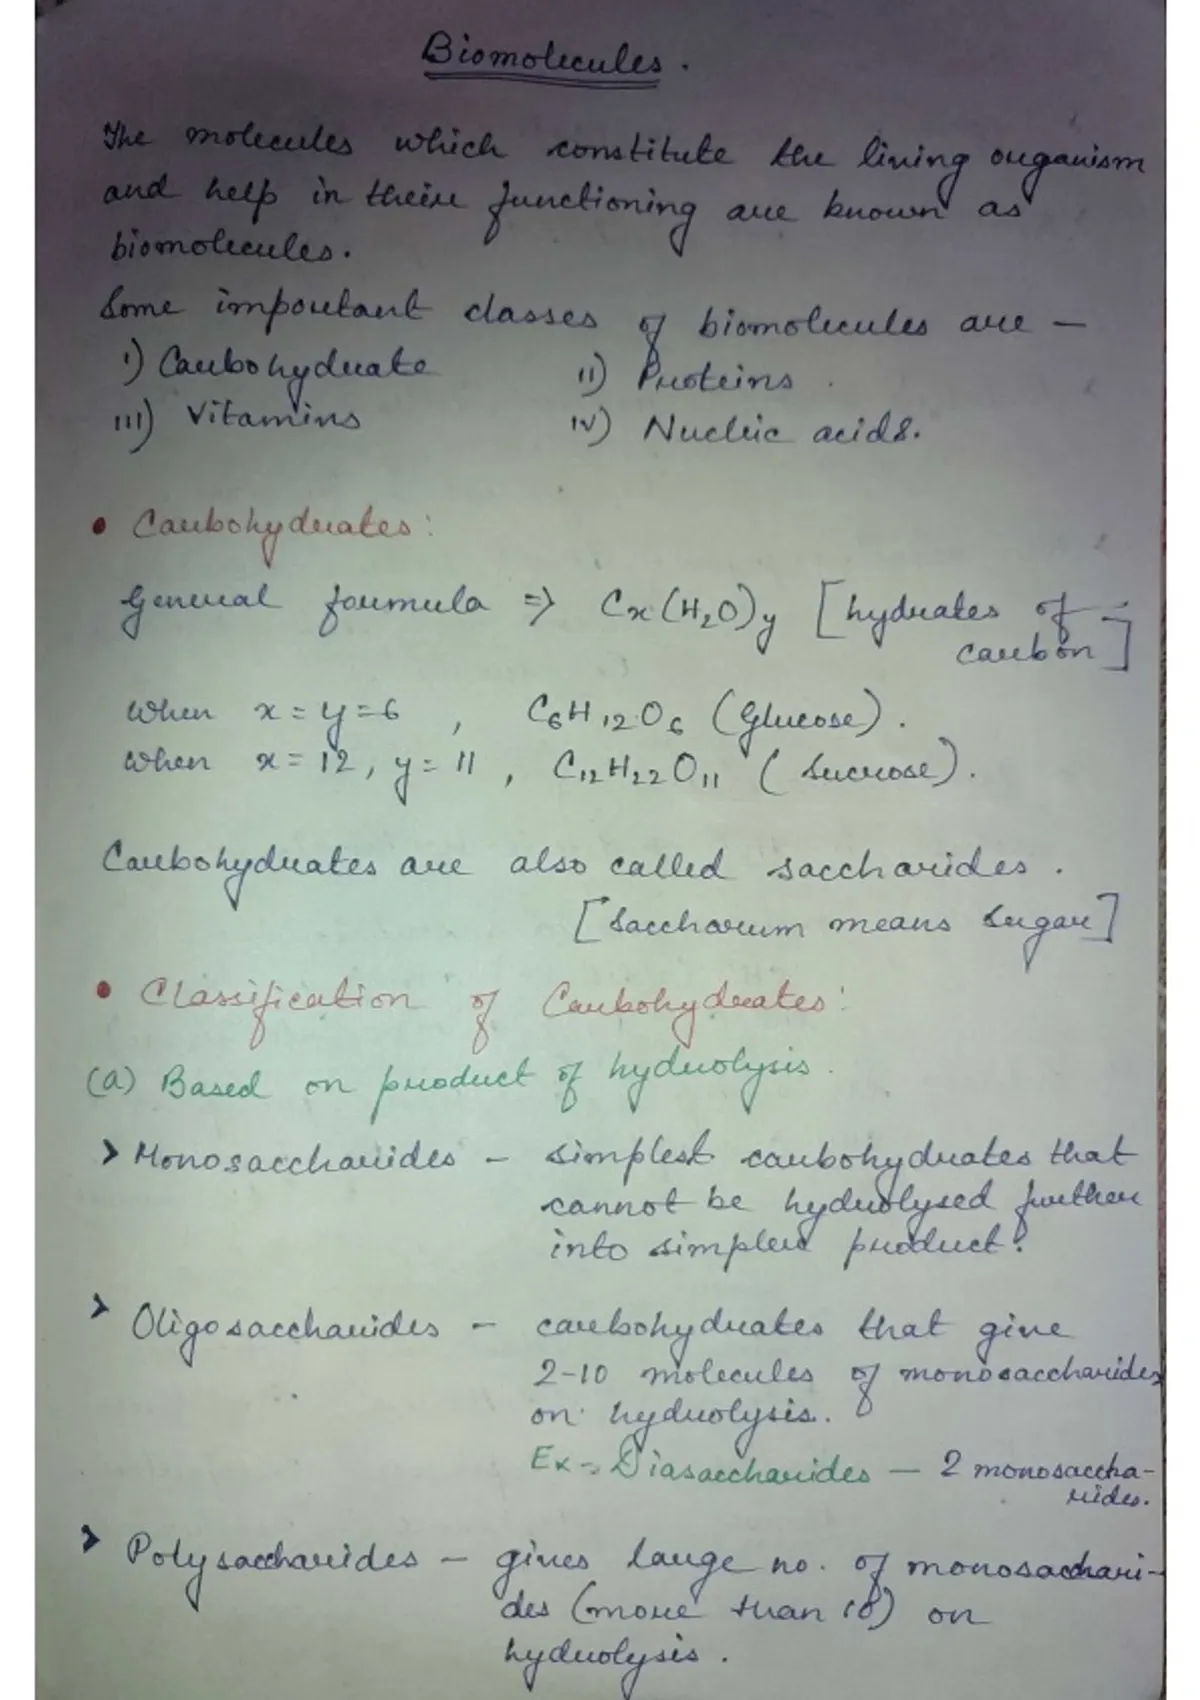 Biomolecules.
The molecules which constitute the living organism
and help in their functioning are known as
biomolecules.
Some important classes of biomolecules are —
i) Carbohydrate ii) Proteins.
iii) Vitamins iv) Nucleic acids.
• Carbohydrates:
General formula ⇒ Cx(H₂O)y [hydrates of
carbon]
When x = y = 6, C₆H₁₂O₆ (Glucose).
When x = 12, y = 11, C₁₂H₂₂O₁₁ (Sucrose).
Carbohydrates are also called saccharides.
[Saccharum means Sugar]
• Classification of Carbohydrates:
(a) Based on product of hydrolysis.
> Monosaccharides - simplest carbohydrates that
cannot be hydrolysed further
into simpler product.
> Oligosaccharides - carbohydrates that give
2-10 molecules of monosaccharides
on hydrolysis.
Ex -> Diasaccharides — 2 monosaccha-
rides.
> Polysaccharides - gives large no. of monosacchari-
des (more than 10) on
hydrolysis.